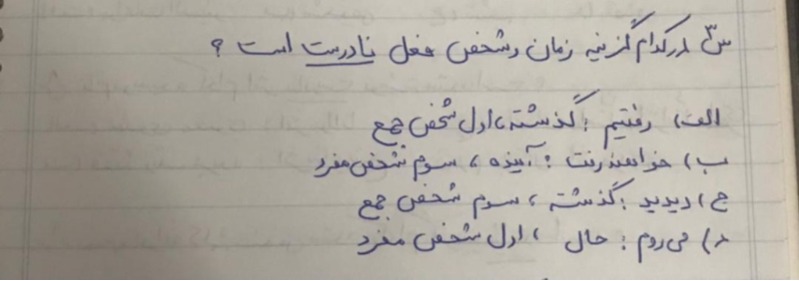 س) در کدام گزینه زمان و شخص فعل نادرست است ؟
الف) رفتیم : گذشته ، اول شخص جمع
ب) خواهند رفت : آینده ، سوم شخص مفرد
ج) دیدید : گذشته ، سوم شخص جمع
د) می روم : حال ، اول شخص مفرد